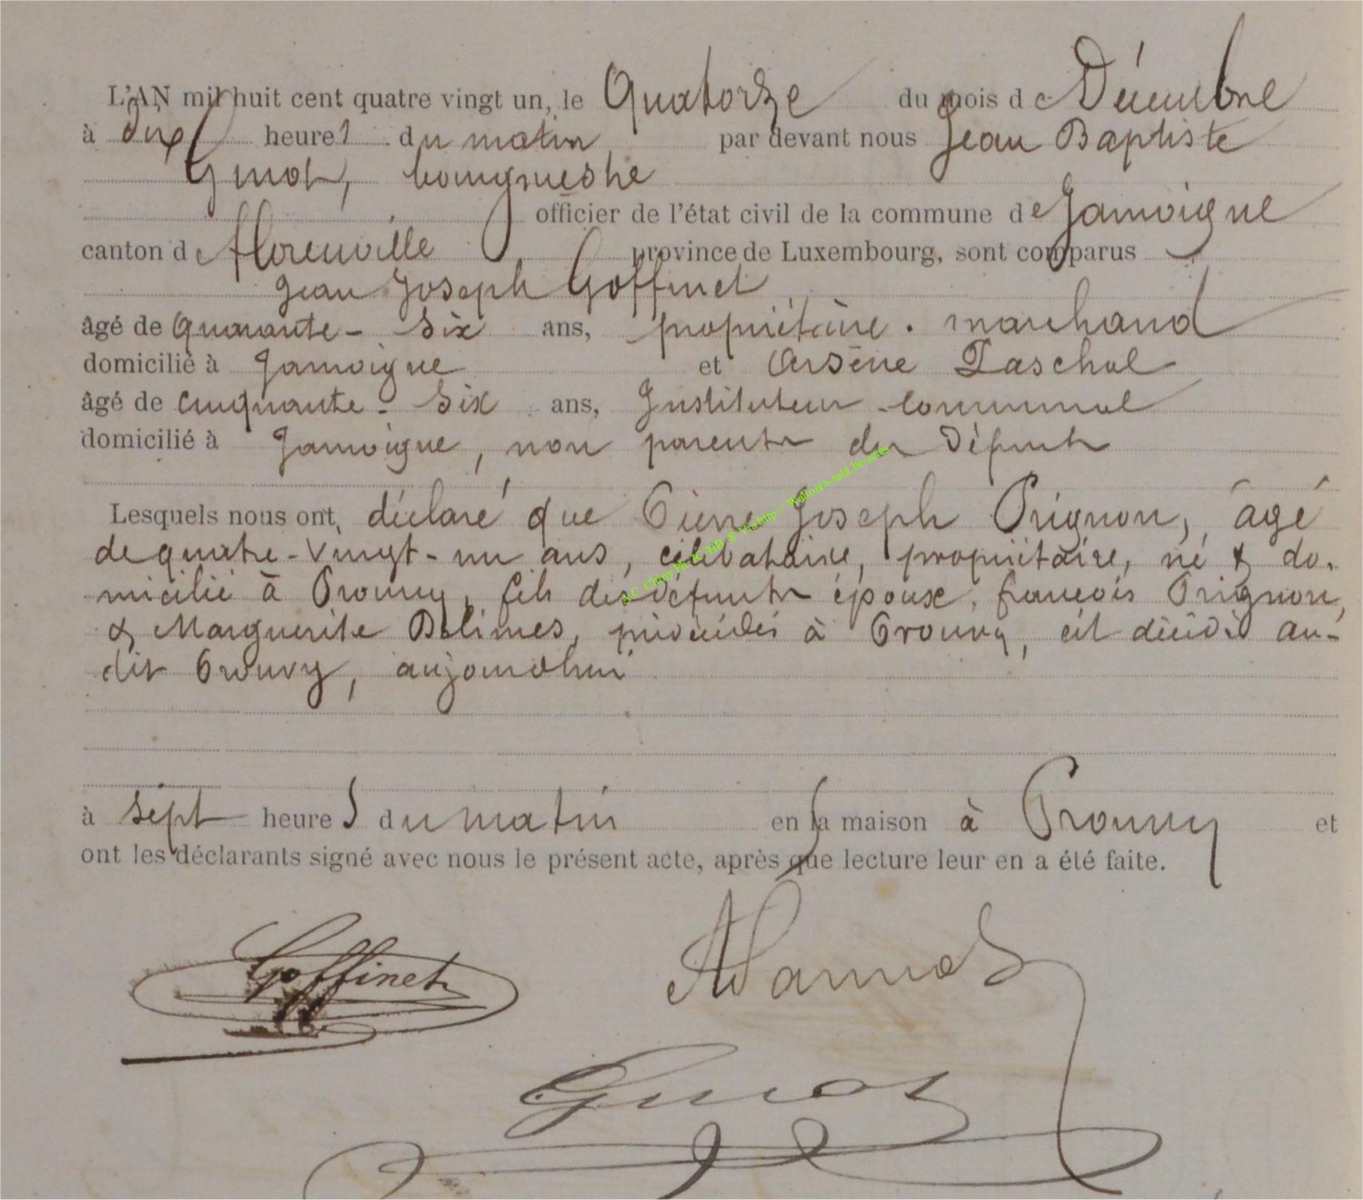 L'AN mil huit cent quatre vingt un, le Quatorze du mois de Décembre
à dix heures du matin par devant nous Jean Baptiste
Guiot, bourgmestre
officier de l'état civil de la commune de Jamoigne
canton de florenville province de Luxembourg, sont comparus
Jean Joseph Goffinet
âgé de Quarante-Six ans, propriétaire. marchand
domicilié à Jamoigne et Arsène Paschal
âgé de cinquante-Six ans, Instituteur communal
domicilié à Jamoigne, non parents du Défunt
Lesquels nous ont, déclaré que Pierre Joseph Prignon, âgé
de quatre-Vingt-un ans, célibataire, propriétaire, né & do-
micilié à Prouvy, fils des Défunts époux, françois Prignon,
& Marguerite Delimes, prédécédés à Prouvy, est décédé au-
dit Prouvy, aujourdhui
à sept heures du matin en sa maison à Prouvy et
ont les déclarants signé avec nous le présent acte, après que lecture leur en a été faite.
Goffinet
Guiot